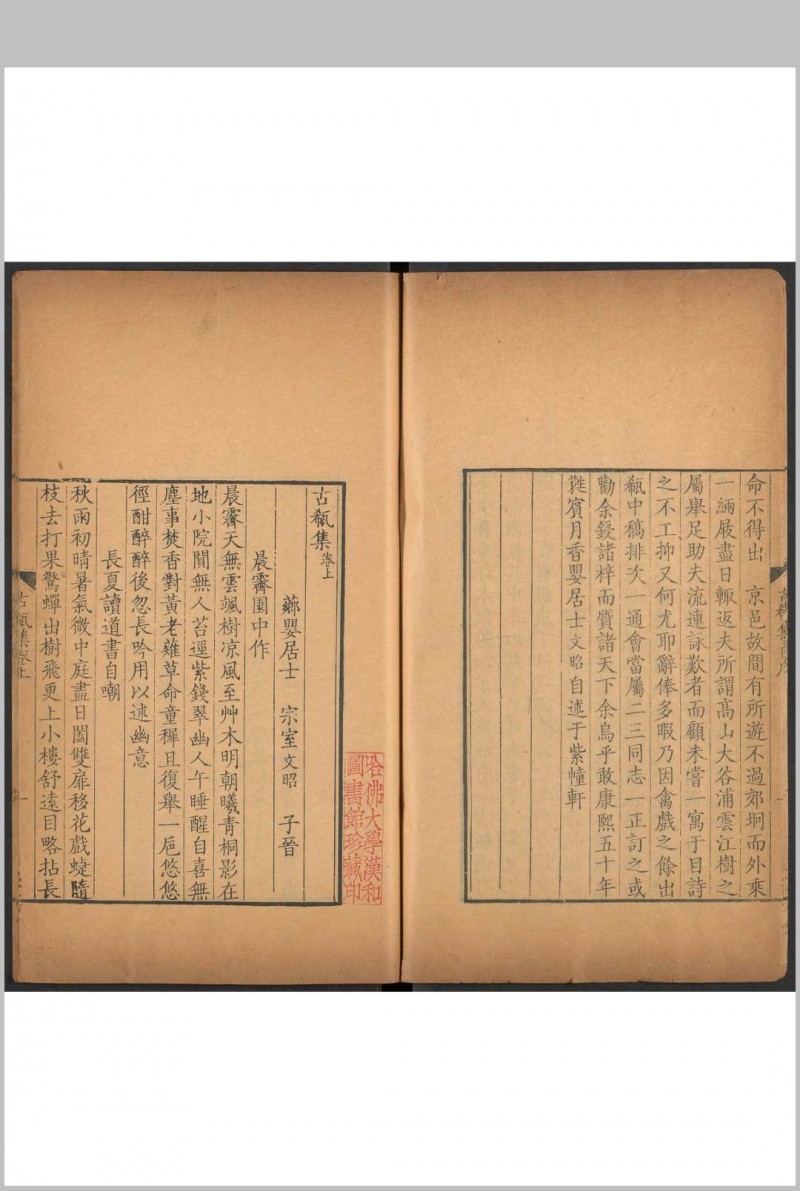 命不得出　京邑故間有所遊不過郊坰而外乘
一緉屐盡日輙返夫所謂髙山大谷浦雲江樹之
屬舉足助夫流連詠歎者而顧未嘗一寓于目詩
之不工抑又何尤耶辭俸多暇乃因禽戲之餘出
瓻中稿排次一通會當屬二三同志一正訂之或
勸余鋟諸梓而質諸天下余烏乎敢康熙五十年
蕤賓月香嬰居士文昭自述于紫幢軒
古瓻集卷上
薌嬰居士　宗室文昭　子晉
晨霽園中作
晨霽天無雲颯樹凉風至艸木明朝曦青桐影在
地小院闃無人苔逕紫錢翠幽人午睡醒自喜無
塵事焚香對黃老雜草命童穉且復舉一巵悠悠
徑酣醉醉後忽長吟用以述幽意
長夏讀道書自嘲
秋雨初晴暑氣微中庭盡日闔雙扉移花戲蜨隨
枝去打果驚蟬出樹飛更上小樓舒遠目略拈長
古瓻集卷上
一
哈佛大學漢和
圖書館珍藏印